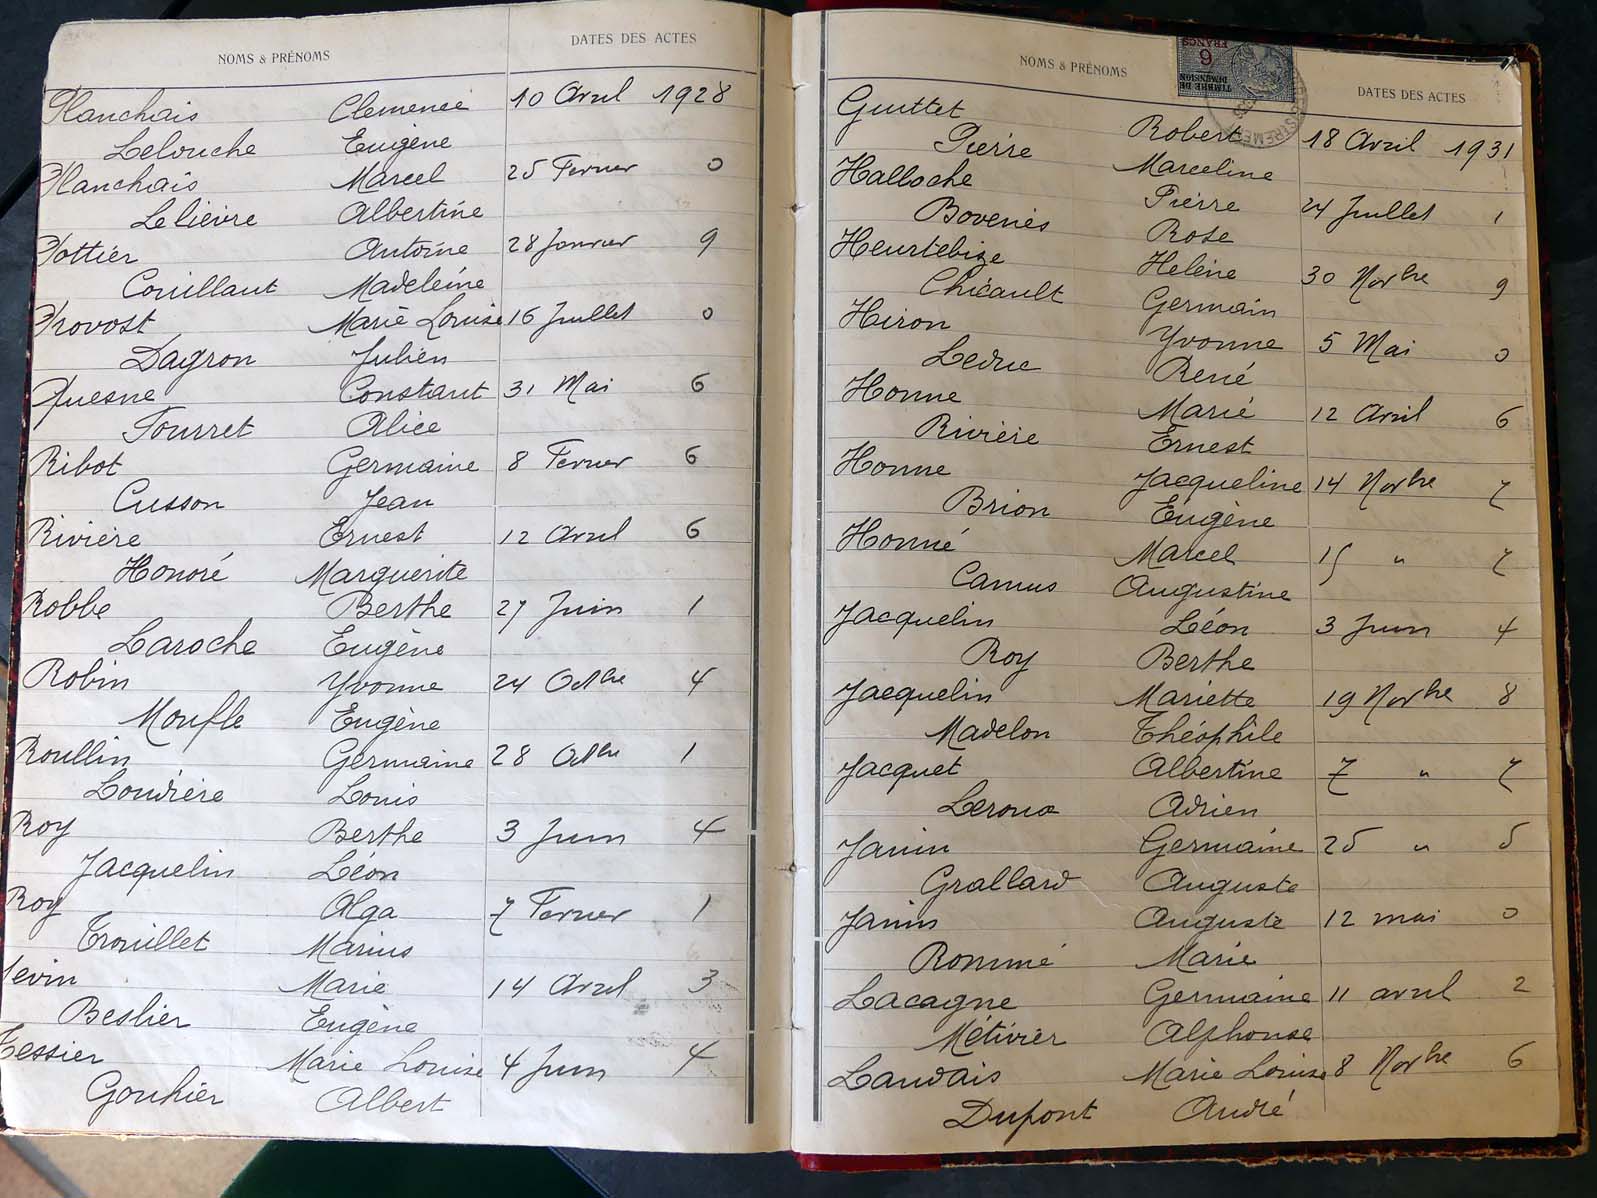 NOMS & PRÉNOMS DATES DES ACTES
Planchais Clemence 10 Avril 1928
Lelouche Eugène
Planchais Marcel 25 Fevrier 0
Lelièvre Albertine
Pottier Antoine 28 Janvier 9
Couillaut Madeleine
Provost Marie Louise 16 Juillet 0
Dagron Julien
Quesne Constant 31 Mai 6
Tourret Alice
Ribot Germaine 8 Fevrier 6
Cusson Jean
Rivière Ernest 12 Avril 6
Honoré Marguerite
Robbe Berthe 27 Juin 1
Laroche Eugène
Robin Yvonne 24 Octbre 4
Moufle Eugène
Roullin Germaine 28 Octbre 1
Loudière Louis
Roy Berthe 3 Juin 4
Jacquelin Léon
Roy Alga 7 Fevrier 1
Trouillet Marius
Marie 14 Avril 3
Beslier Eugène
Tessier Marie Louise 4 Juin 4
Gouhier Albert
NOMS & PRÉNOMS DATES DES ACTES
TIMBRE DE DIMENSION
6 FRANCS
Guittet Robert 18 Avril 1931
Pierre Marceline
Halloche Pierre 24 Juillet 1
Bovenès Rose
Heurtebize Helène 30 Novbre 9
Chicault Germain
Hiron Yvonne 5 Mai 0
Leduc René
Honne Marie 12 Avril 6
Rivière Ernest
Honne Jacqueline 14 Novbre 7
Brion Eugène
Honné Marcel 15 " 7
Camus Augustine
Jacquelin Léon 3 Juin 4
Roy Berthe
Jacquelin Mariette 19 Novbre 8
Madelon Théophile
Jacquet Albertine 7 " 7
Leroux Adrien
Janin Germaine 25 " 5
Grallard Auguste
Janin Auguste 12 mai 0
Rommé Marie
Lacagne Germaine 11 avril 2
Métivier Alphonse
Landais Marie Louise 8 Novbre 6
Dupont André